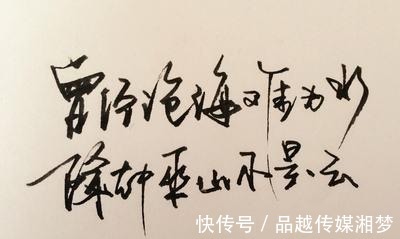 曾经沧海难为水
除却巫山不是云
快传号/品越传媒湘梦